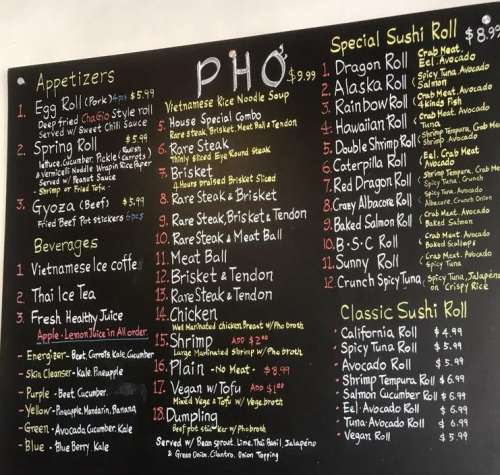 Appetizers
1. Egg Roll (Pork) 4pcs $5.99
Deep fried ChaGio Style roll
Served w/ Sweet Chili Sauce
2. Spring Roll $5.99
Lettuce. Cucumber. Pickle (Radish Carrots)
& Vermicelli Noodle Wrap in Rice Paper
Served w/ Peanut Sauce
Shrimp or Fried Tofu
3. Gyoza (Beef) $5.99
Fried Beef Pot stickers 6pcs
Beverages
1. Vietnamese Ice coffe
2. Thai Ice Tea
3. Fresh Healthy Juice
Apple - Lemon Juice in All order
- Energizer - Beet, Carrots, Kale, Cucumber
- Skin Cleanser - Kale, Pineapple
- Purple - Beet. Cucumber
- Yellow - Pineapple, Mandarin, Banana
- Green - Avocado, Cucumber, Kale
- Blue - Blue Berry, Kale
PHỞ $9.99
Vietnamese Rice Noodle Soup
5. House Special Combo
Rare steak, Brisket, Meat Ball & Tendon
6. Rare Steak
Thinly sliced Eye Round steak
7. Brisket
4 Hours Braised Brisket Sliced
8. Rare Steak & Brisket
9. Rare Steak, Brisket & Tendon
10. Rare Steak & Meat Ball
11. Meat Ball
12. Brisket & Tendon
13. Rare Steak & Tendon
14. Chicken
Well Marinated chicken Breast w/ Pho broth
15. Shrimp ADD $2.00
Large Marinated Shrimp w/ Pho broth
16. Plain - No Meat - $8.99
17. Vegan w/ Tofu ADD $1.00
Mixed Vege & Tofu w/ Vege broth
18. Dumpling
Beef pot sticker w/ Pho broth
Served w/ Bean sprout. Lime. Thai Basil, Jalapeño
& Green Onion. Cilantro. Onion Topping
Special Sushi Roll $8.99
1. Dragon Roll Crab Meat. Eel. Avocado
2. Alaska Roll Spicy Tuna, Avocado Salmon
3. Rainbow Roll Crab Meat. Avocado 4 kinds Fish
4. Hawaiian Roll Crab Meat. Avocado Tuna
5. Double Shrimp Roll Shrimp Tempura, Crab Meat Shrimp, Avocado
6. Caterpilla Roll Eel. Crab Meat Avocado
7. Red Dragon Roll Shrimp Tempura, Crab Meat Spicy Tuna, Crunch
8. Crazy Albacore Roll Spicy Tuna, Avocado Albacore. Crunch Onion
9. Baked Salmon Roll Crab Meat. Avocado Baked Salmon
10. B.S.C Roll Crab Meat. Avocado Baked Scallops
11. Sunny Roll Crab Meat. Avocado Spicy Tuna
12. Crunch Spicy Tuna Spicy Tuna, Jalapeño on Crispy Rice
Classic Sushi Roll
- California Roll $4.99
- Spicy Tuna Roll $5.99
- Avocado Roll $5.99
- Shrimp Tempura Roll $6.99
- Salmon Cucumber Roll $6.99
- Eel. Avocado Roll $6.99
- Tuna. Avocado Roll $6.99
- Vegan Roll $5.99